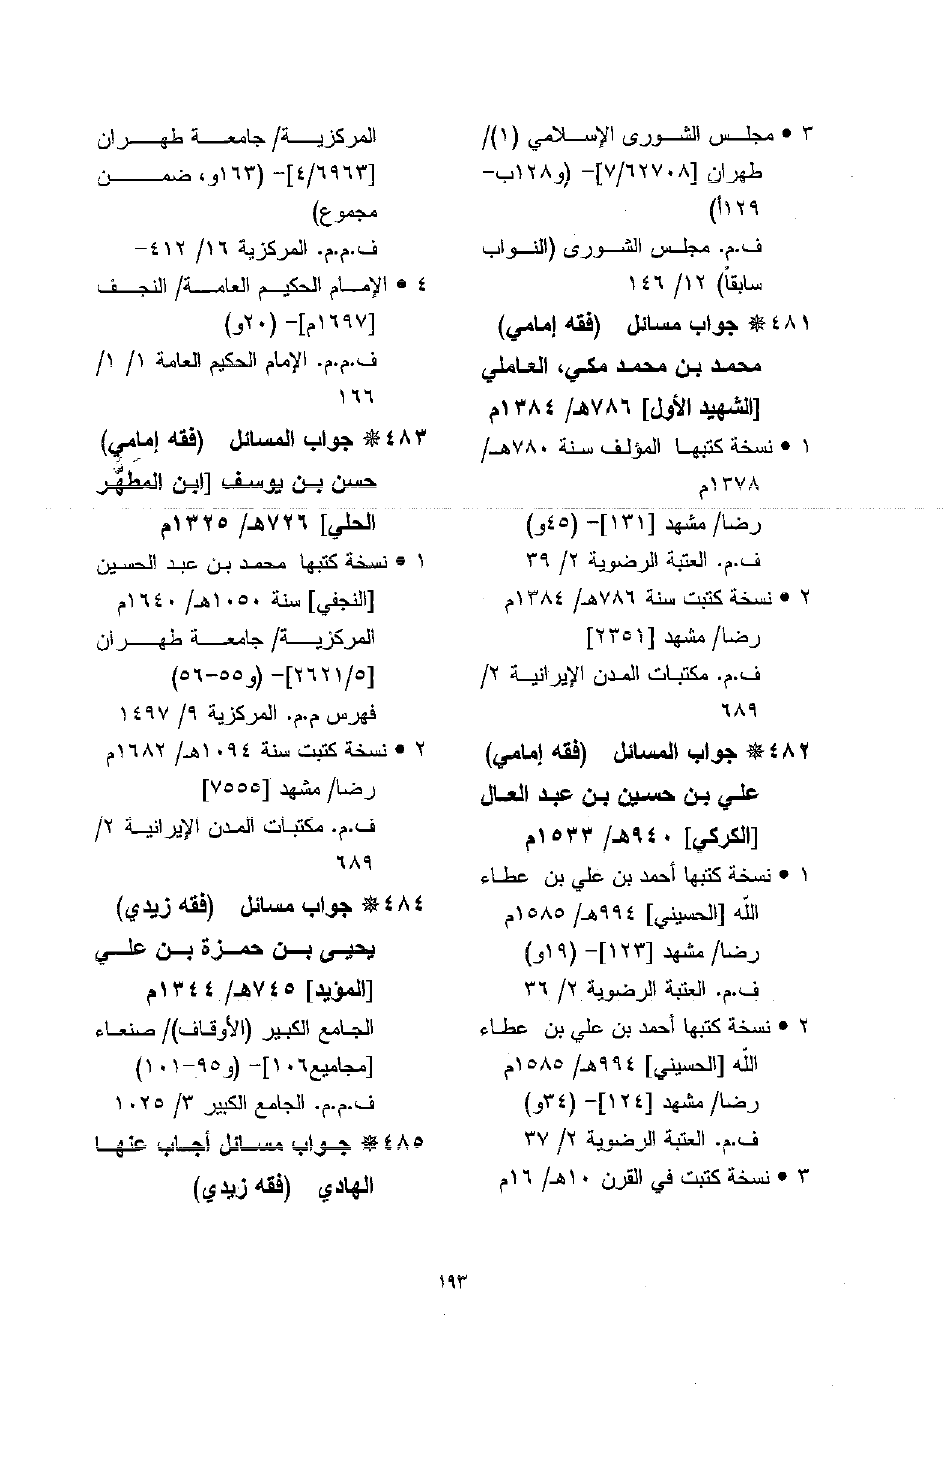 ٣ • مجلس الشورى الإسلامي (١)/
طهران [٧/٦٢٧٠٨]- (و١٢٨ب-
١٢٩أ)
ف.م. مجلس الشورى (النواب
سابقاً) ١٢/ ١٤٦
٤٨١※ جواب مسائل (فقه إمامي)
محمد بن محمد مكي، العاملي
[الشهيد الأول] ٧٨٦هـ/ ١٣٨٤م
١ • نسخة كتبها المؤلف سنة ٧٨٠هـ/
١٣٧٨م
رضا/ مشهد [١٣١]- (٤٥و)
ف.م. العتبة الرضوية ٢/ ٣٩
٢ • نسخة كتبت سنة ٧٨٦هـ/ ١٣٨٤م
رضا/ مشهد [٢٣٥١]
ف.م. مكتبات المدن الإيرانية ٢/
٦٨٩
٤٨٢※ جواب المسائل (فقه إمامي)
علي بن حسين بن عبد العال
[الكركي] ٩٤٠هـ/ ١٥٣٣م
١ • نسخة كتبها أحمد بن علي بن عطاء
الله [الحسيني] ٩٩٤هـ/ ١٥٨٥م
رضا/ مشهد [١٢٣]- (١٩و)
ف.م. العتبة الرضوية ٢/ ٣٦
٢ • نسخة كتبها أحمد بن علي بن عطاء
الله [الحسيني] ٩٩٤هـ/ ١٥٨٥م
رضا/ مشهد [١٢٤]- (٣٤و)
ف.م. العتبة الرضوية ٢/ ٣٧
٣ • نسخة كتبت في القرن ١٠هـ/ ١٦م
المركزية/ جامعة طهران
[٤/٦٩٦٣]- (١٦٣و، ضمن
مجموع)
ف.م.م. المركزية ١٦/ ٤١٢-
٤ • الإمام الحكيم العامة/ النجف
[١٦٩٧م]- (٢٠و)
ف.م.م. الإمام الحكيم العامة ١/ ١/
١٦٦
٤٨٣※ جواب المسائل (فقه إمامي)
حسن بن يوسف [ابن المطهّر
الحلي] ٧٢٦هـ/ ١٣٢٥م
١ • نسخة كتبها محمد بن عبد الحسين
[النجفي] سنة ١٠٥٠هـ/ ١٦٤٠م
المركزية/ جامعة طهران
[٢٦٢١/٥]- (و٥٥-٥٦)
فهرس م.م. المركزية ٩/ ١٤٩٧
٢ • نسخة كتبت سنة ١٠٩٤هـ/ ١٦٨٢م
رضا/ مشهد [٧٥٥٥]
ف.م. مكتبات المدن الإيرانية ٢/
٦٨٩
٤٨٤※ جواب مسائل (فقه زيدي)
يحيى بن حمزة بن علي
[المؤيد] ٧٤٥هـ/ ١٣٤٤م
الجامع الكبير (الأوقاف)/ صنعاء
[مجاميع١٠٦]- (و٩٥-١٠١)
ف.م.م. الجامع الكبير ٣/ ١٠٢٥
٤٨٥※ جواب مسائل أجاب عنها
الهادي (فقه زيدي)
١٩٣